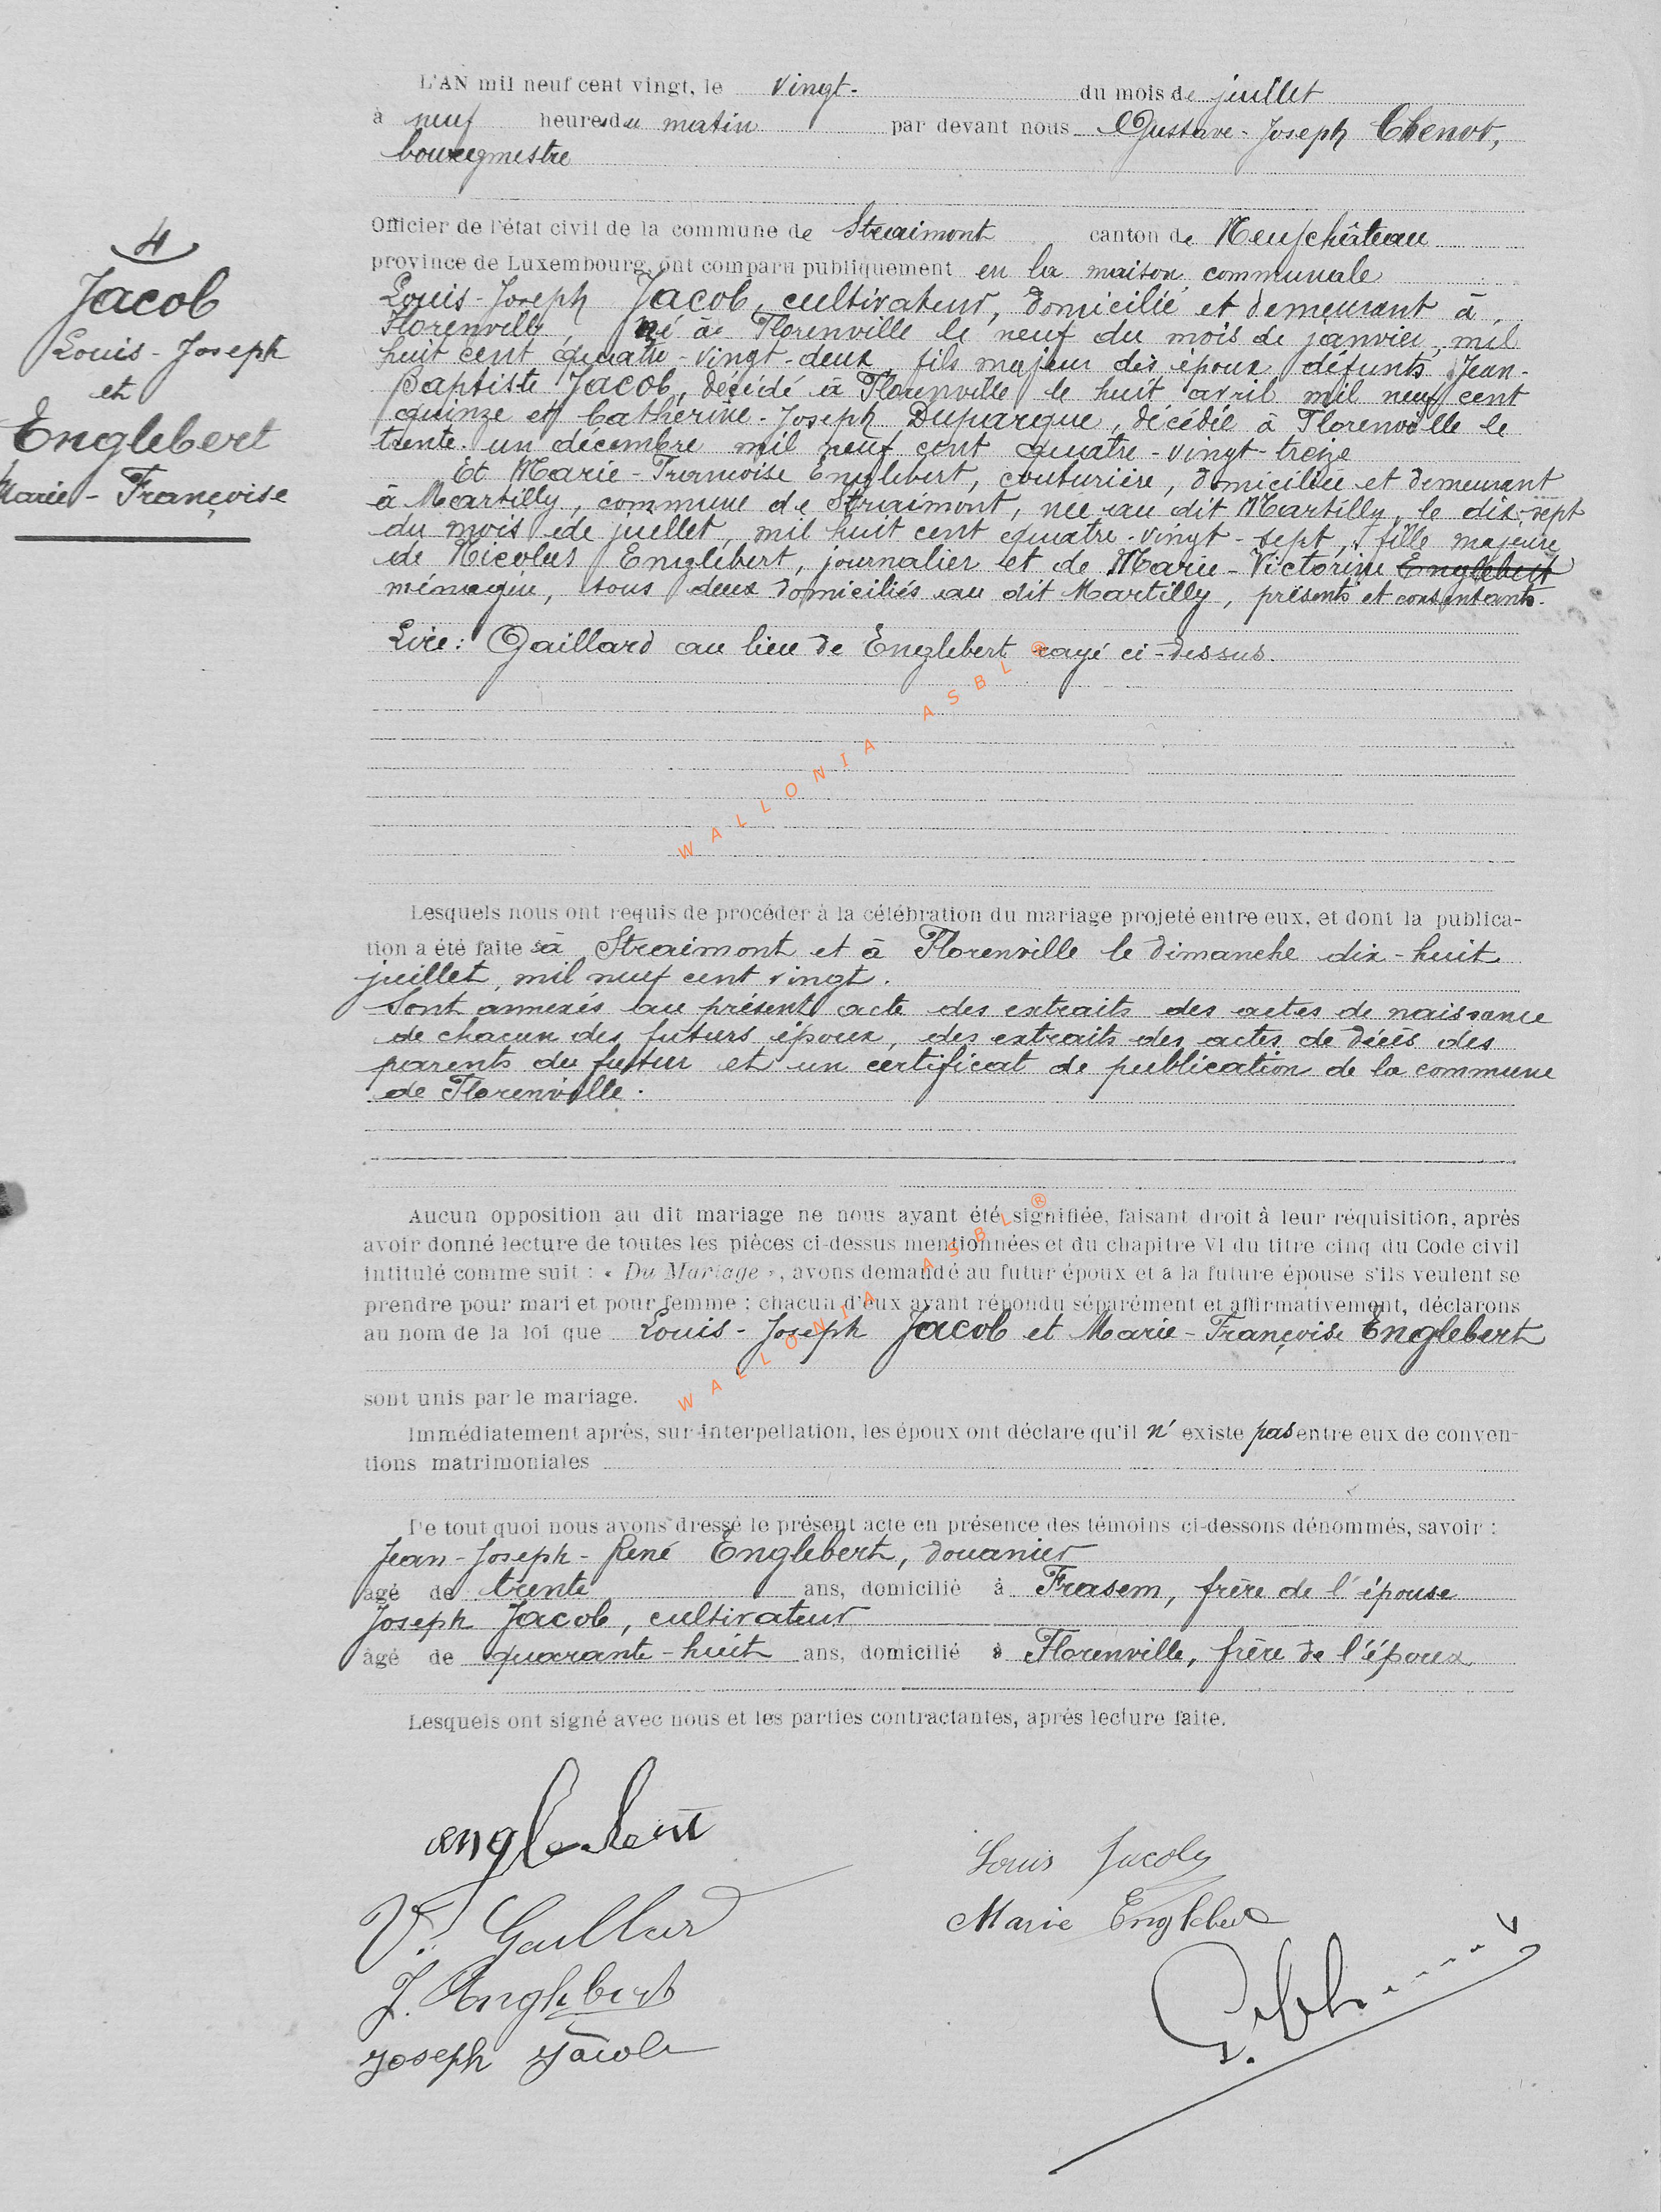 L'AN mil neuf cent vingt, le vingt- du mois de juillet
à neuf heures du matin par devant nous Gustave-Joseph Chenot,
bourgmestre
4
Jacob
Louis-Joseph
et
Englebert
Marie-Françoise
Officier de l'état civil de la commune de Straimont canton de Neufchâteau
province de Luxembourg, ont comparu publiquement en la maison communale
Louis-Joseph Jacob, cultivateur, domicilié et demeurant à
Florenville, né à Florenville le neuf du mois de janvier, mil
huit cent quatre-vingt-deux, fils majeur des époux défunts Jean-
Baptiste Jacob, décédé à Florenville le huit avril mil neuf cent
quinze et Catherine-Joseph Duparque, décédée à Florenville le
trente-un décembre mil neuf cent quatre-vingt-treize
Et Marie-Françoise Englebert, couturière, domiciliée et demeurant
à Martilly, commune de Straimont, née au dit Martilly, le dix-sept
du mois de juillet, mil huit cent quatre-vingt-sept, fille majeure
de Nicolas Englebert, journalier et de Marie-Victorine Englebert
ménagère, tous deux domiciliés au dit Martilly, présents et consentants.
Lire: Gaillard au lieu de Englebert rayé ci-dessus.
WALLONIA ASBL ®
Lesquels nous ont requis de procéder à la célébration du mariage projeté entre eux, et dont la publica-
tion a été faite à Straimont et à Florenville le dimanche dix-huit
juillet, mil neuf cent vingt.
Sont annexés au présent acte des extraits des actes de naissance
de chacun des futurs époux, des extraits des actes de décès des
parents du futur et un certificat de publication de la commune
de Florenville.
Aucun opposition au dit mariage ne nous ayant été signifiée, faisant droit à leur réquisition, après
avoir donné lecture de toutes les pièces ci-dessus mentionnées et du chapitre VI du titre cinq du Code civil
intitulé comme suit : « Du Mariage », avons demandé au futur époux et à la future épouse s'ils veulent se
prendre pour mari et pour femme ; chacun d'eux ayant répondu séparément et affirmativement, déclarons
au nom de la loi que Louis-Joseph Jacob et Marie-Françoise Englebert
WALLONIA ASBL ®
sont unis par le mariage.
Immédiatement après, sur interpellation, les époux ont déclare qu'il n' existe pas entre eux de conven-
tions matrimoniales
De tout quoi nous avons dressé le présent acte en présence des témoins ci-dessons dénommés, savoir :
Jean-Joseph-René Englebert, douanier
âgé de trente ans, domicilié à Frasem, frère de l'épouse
Joseph Jacob, cultivateur
âgé de quarante-huit ans, domicilié à Florenville, frère de l'époux
Lesquels ont signé avec nous et les parties contractantes, après lecture faite.
englebert
Louis Jacob
V. Gaillard
Marie Englebert
J. Englebert
Joseph Jacob